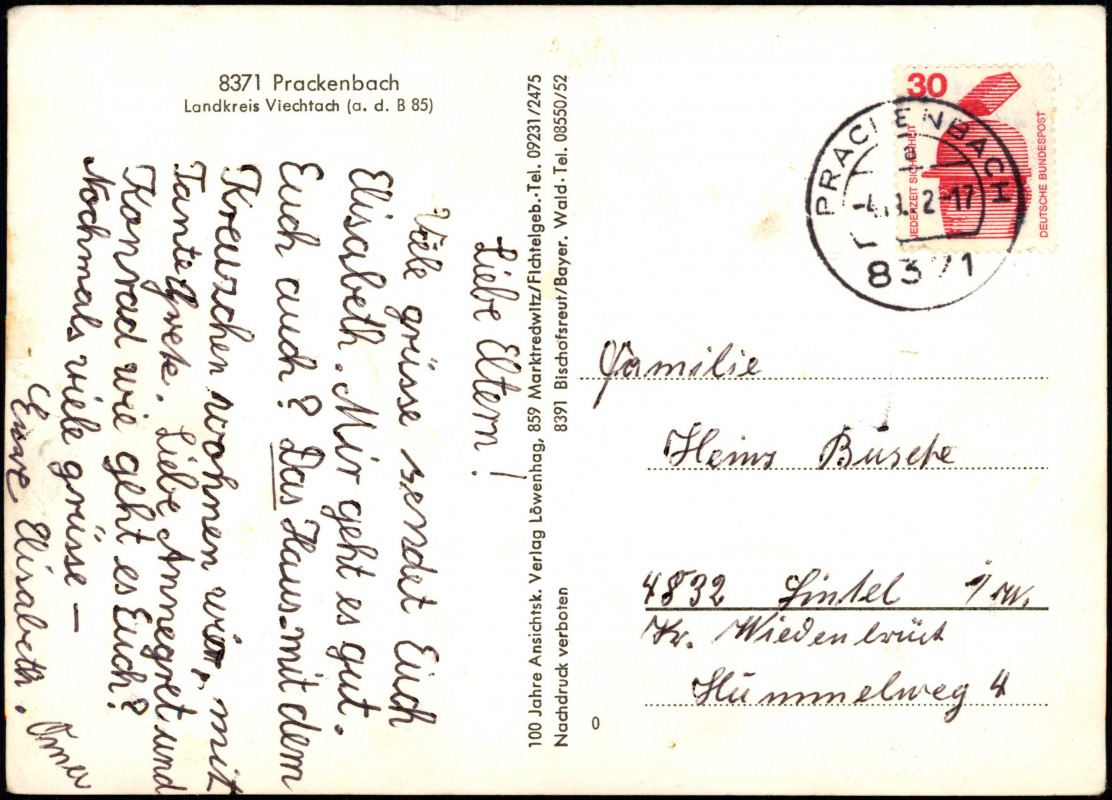 8371 Prackenbach
Landkreis Viechtach (a. d. B 85)
Liebe Eltern!
Viele grüsse sendet Euch
Elisabeth. Mir geht es gut.
Euch auch? Das Haus mit dem
Kreuzchen wohnen wir, mit
Tante Grete. Liebe Annegret und
Konrad wie geht es Euch?
Nochmals viele grüsse –
Eure Elisabeth.
100 Jahre Ansichtsk. Verlag Löwenhag, 859 Marktredwitz/Fichtelgeb.-Tel. 09231/2475
8391 Bischofsreut/Bayer. Wald-Tel. 08550/52
Nachdruck verboten
0
30
JEDERZEIT SICHERHEIT
DEUTSCHE BUNDESPOST
PRACKENBACH
8371
Familie
Heins Büsche
4832 Lintel i/w.
Kr. Wiedenbrück
Hümmelweg 4